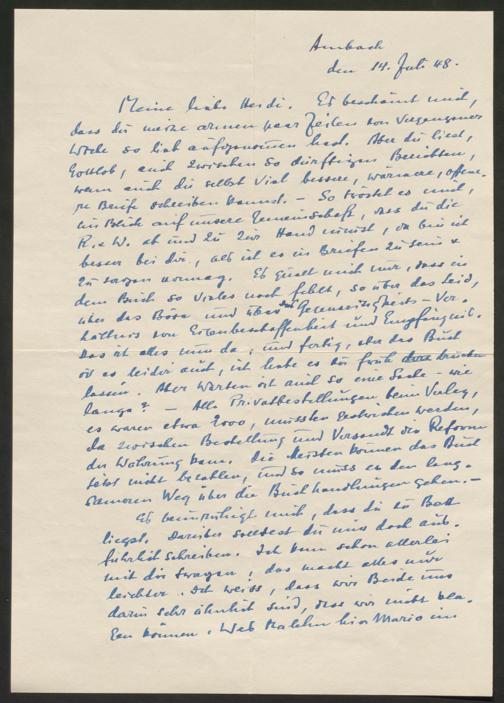 Ambach
den 14. Juli 48.
Meine liebe Heidi. Es beschämt mich,
dass du meine armen paar Zeilen von vergangener
Woche so lieb aufgenommen hast. Aber du liest,
Gottlob, auch zwischen so dürftigen Berichten,
wenn auch du selbst viel bessere, wärmere, offene-
re Briefe schreiben kannst. — So tröstet es mich,
im Blick auf unsere Gemeinschaft, dass du die
R. u W. ab und zu zur Hand nimmst, da bin ich
besser bei dir, als ich es in Briefen zu sein u
zu sagen vermag. Es quält mich nur, dass in
dem Buch so vieles noch fehlt, so über das Leid,
über das Böse und über das Gegenseitigkeits-Ver-
hältnis von Eigenbeschaffenheit und Empfängnis.
Das ist alles nun da, und fertig, aber das Buch
ist es leider auch, ich habe es zu früh drucken
lassen. Aber Warten ist auch so eine Sache – wie
lange? — Alle Privatbestellungen beim Verlag,
es waren etwa 2000, mussten gestrichen werden,
da zwischen Bestellung und Versandt die Reform
der Währung kam. Die Meisten können das Buch
jetzt nicht bezahlen, und so muss es den lang-
sameren Weg über die Buchhandlungen gehen. —
Es beunruhigt mich, dass du zu Bett
liegst. Darüber solltest du uns doch aus-
führlich schreiben. Ich kann schon allerlei
mit dir tragen, das macht alles nur
leichter. Ich weiss, dass wir Beide uns
darin sehr ähnlich sind, dass wir nicht kla-
gen können. Web Malchn hier Mario im